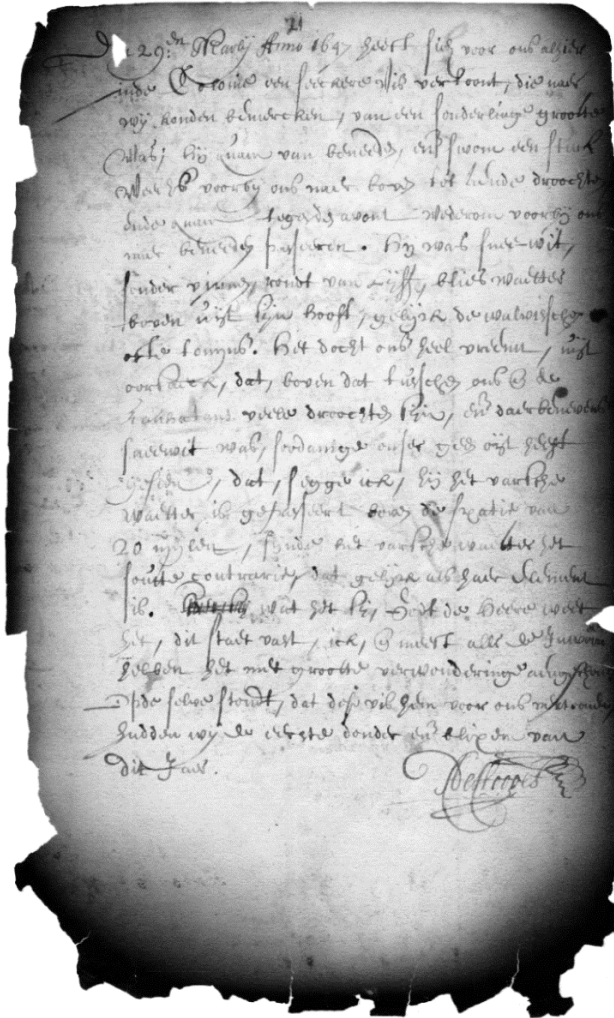 21
Den 29.en Martij Anno 1647 heeft sich voor ons alhier
inde Colonie een seeckere Vis vertoont, die naer
wij konden bemercken, van een sonderlinge groote
was, hij quam van beneden, en swom een stuck
weechs voorbij ons naer boven tot aende droochten
ende quam tegen den avont wederom voorbij ons
naer beneden passeren. Hij was sneewit,
sonder vinnen, ront van Lijff, blies waetter
boven uijt sijn hooft, gelijck de walvisschen
ofte tonijns. Het docht ons heel vreemt, uijt
oorsaeck, dat, boven dat tusschen ons en de
Manhatans veele droochten sijn, en daerbenevens
sneewit was, soodanige onser geen oijt heeft
gesien, dat, segge ick, hij het varsche
waetter is gepasseert boven de spatie van
20 mijlen, sijnde het varsch waetter het
soutte contrarie, dat gelijck als haer Element
is. wat het sij, Godt de Heere weet
het, dit staet vast, ick, en meest alle de Inwoonders
hebben het met groote verwonderinge aengesien.
Opde selve stondt, dat dese vis hem voor ons vertoonde,
hadden wij de eerste donder en blixem van
dit Jaer.